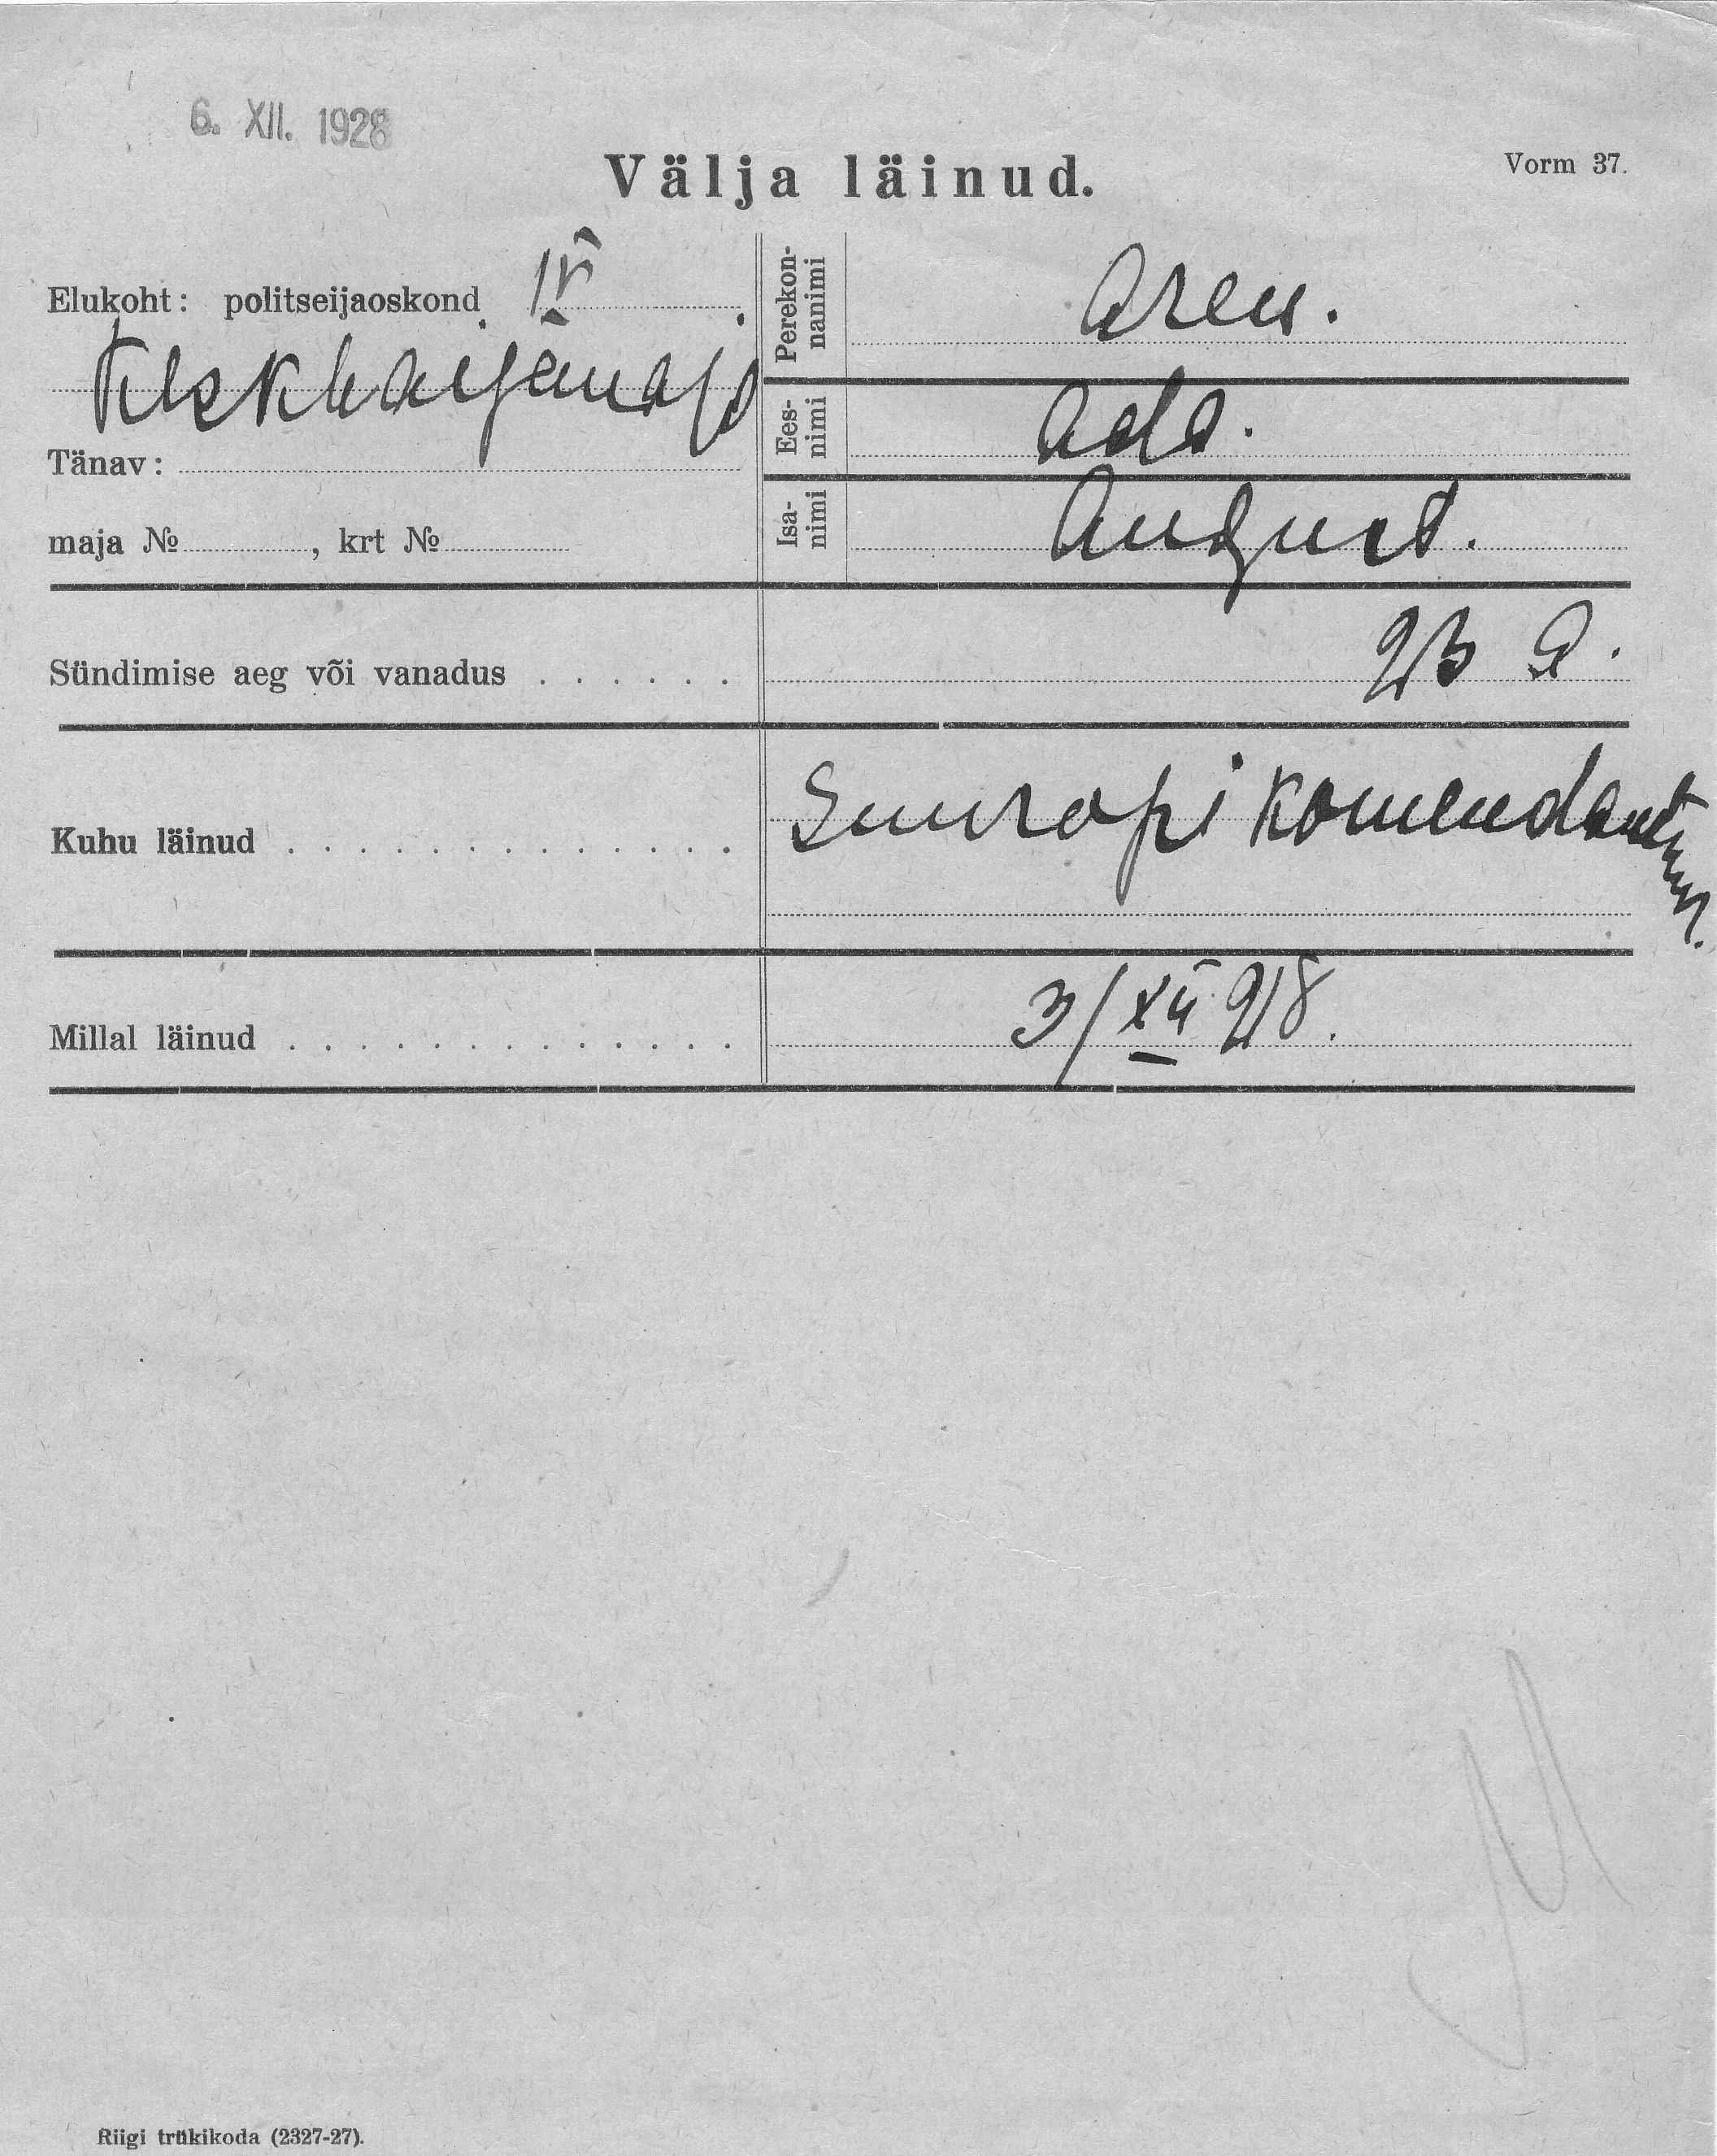 6. XII. 1928
Välja läinud.
Vorm 37.
Elukoht: politseijaoskond IV
Keskhaigemaja
Tänav:
maja № , krt №
Perekon-
nanimi
Aren.
Ees-
nimi
Ada.
Isa-
nimi
August.
Sündimise aeg või vanadus . . . . . . 23 a.
Kuhu läinud . . . . . . . . . . . . . Suuropi komendantuur.
Millal läinud . . . . . . . . . . . . . 3/XII 28.
Riigi trükikoda (2327-27).